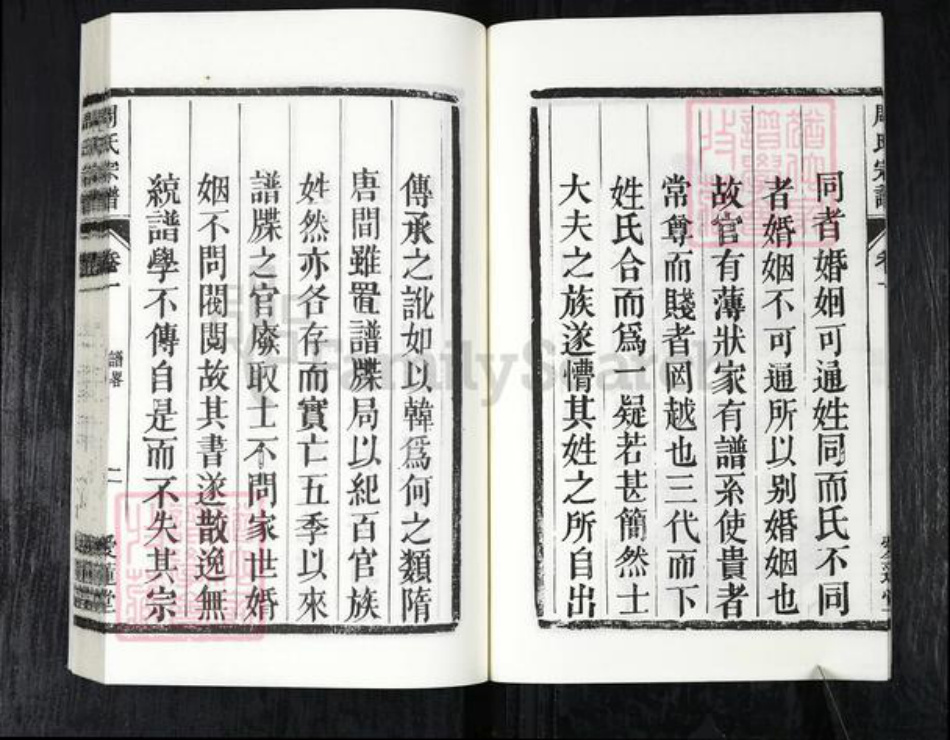 周氏宗譜
卷一
愛蓮堂
同者婚姻可通姓同而氏不同
者婚姻不可通所以别婚姻也
故官有薄狀家有譜系使貴者
常尊而賤者罔越也三代而下
姓氏合而爲一疑若甚簡然士
大夫之族遂懵其姓之所自出
傳承之訛如以韓爲何之類隋
唐間雖置譜牒局以紀百官族
姓然亦各存而實亡五季以來
譜牒之官廢取士不問家世婚
姻不問閥閱故其書遂散逸無
統譜學不傳自是而不失其宗
周氏宗譜
卷一
譜畧
二
愛蓮堂
FamilySearch